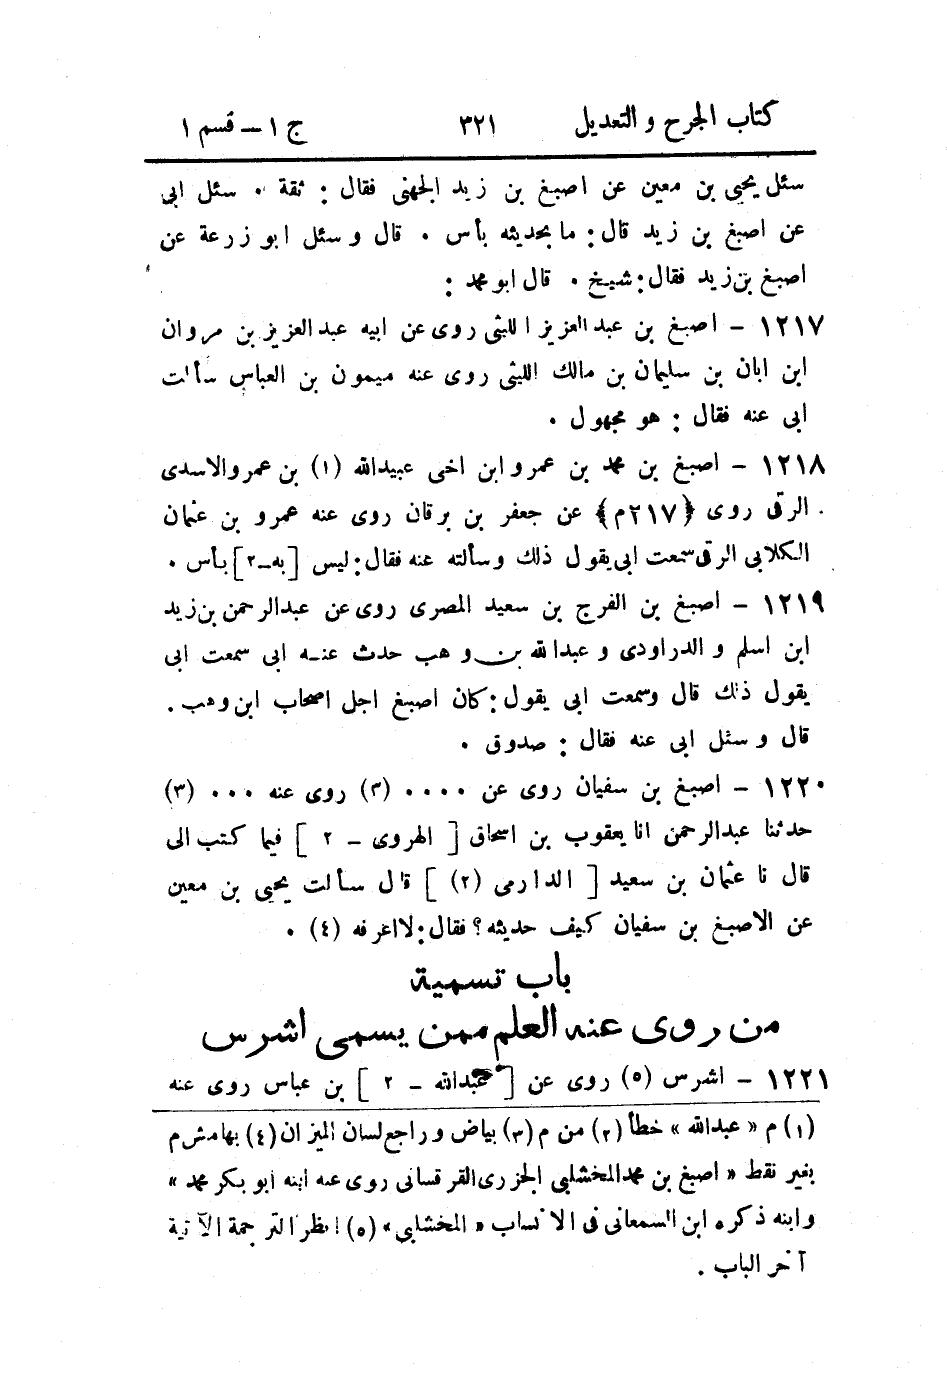 كتاب الجرح و التعديل ٣٢١ ج ١ – قسم ١
سئل يحيى بن معين عن اصبغ بن زيد الجهنى فقال: ثقة . سئل ابى
عن اصبغ بن زيد قال: ما بحديثه بأس . قال و سئل ابو زرعة عن
اصبغ بن زيد فقال: شيخ . قال ابو محمد :
١٢١٧ – اصبغ بن عبد العزيز الليثى روى عن ابيه عبد العزيز بن مروان
ابن ابان بن سليمان بن مالك الليثى روى عنه ميمون بن العباس سألت
ابى عنه فقال : هو مجهول .
١٢١٨ – اصبغ بن محمد بن عمرو ابن اخى عبيدالله (١) بن عمرو الاسدى
الرقى روى ﴿٢١٧م﴾ عن جعفر بن برقان روى عنه عمرو بن عثمان
الكلابى الرقى سمعت ابى يقول ذلك و سألته عنه فقال: ليس [به–٢] بأس .
١٢١٩ – اصبغ بن الفرج بن سعيد المصرى روى عن عبدالرحمن بن زيد
ابن اسلم و الدراودى و عبدالله بن و هب حدث عنه ابى سمعت ابى
يقول ذلك قال وسمعت ابى يقول: كان اصبغ اجل اصحاب ابن وهب .
قال و سئل ابى عنه فقال : صدوق .
١٢٢٠ – اصبغ بن سفيان روى عن .... (٣) روى عنه ... (٣)
حدثنا عبدالرحمن انا يعقوب بن اسحاق [ الهروى – ٢ ] فيما كتب الى
قال نا عثمان بن سعيد [ الدارمى (٢) ] قال سألت يحيى بن معين
عن الاصبغ بن سفيان كيف حديثه؟ فقال: لااعرفه (٤) .
باب تسمية
من روى عنه العلم ممن يسمى اشرس
١٢٢١ – اشرس (٥) روى عن [ عبدالله – ٢ ] بن عباس روى عنه
(١) م « عبدالله » خطأ (٢) من م (٣) بياض و راجع لسان الميزان (٤) بهامش م
بغير نقط « اصبغ بن محمد المخشلبى الجزرى القرقسانى روى عنه ابنه ابو بكر محمد »
و ابنه ذكره ابن السمعانى فى الانساب « المخشلبى » (٥) انظر الترجمة الآتية
آخر الباب .